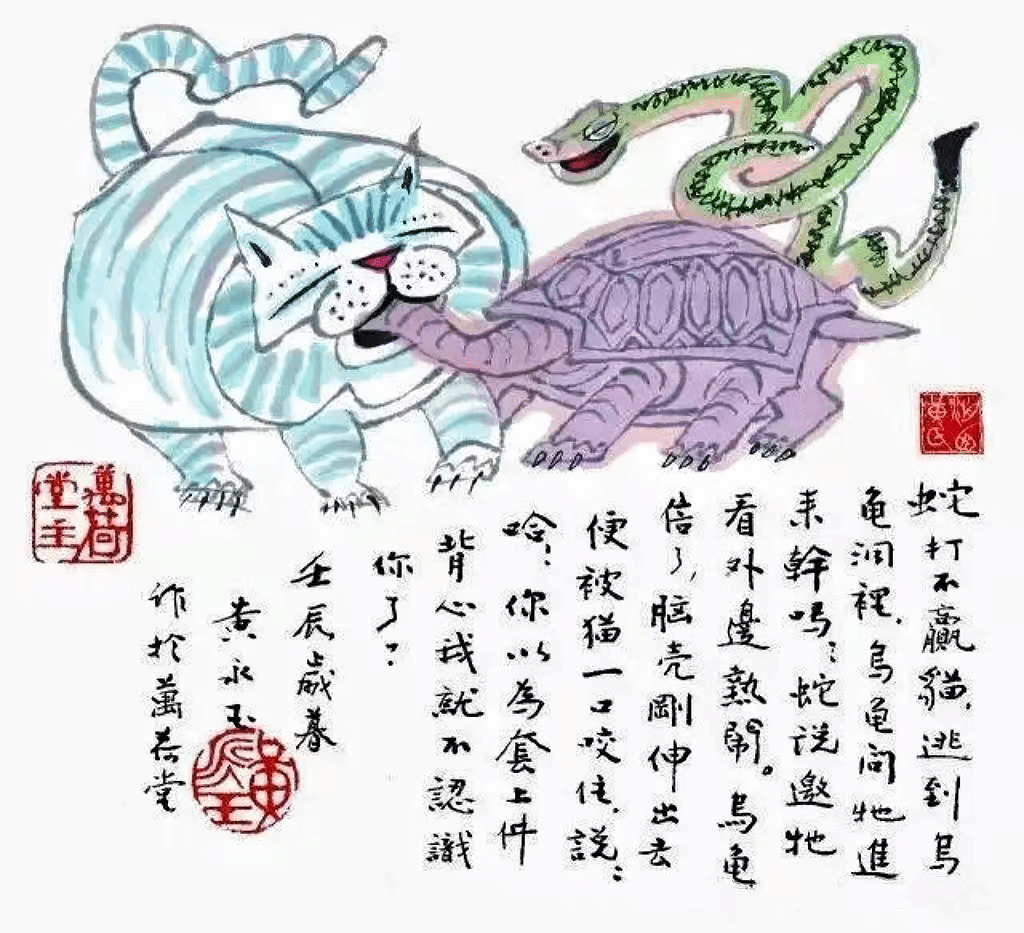 蛇打不贏貓，逃到烏
龜洞裡，烏龜问牠進
来幹嗎；蛇说邀牠
看外邊熱鬧。烏龜
信了，脑壳剛伸出去
便被猫一口咬住，説：
哈！你以為套上件
背心我就不認識
你了？
壬辰歲暮
黄永玉
作於萬荷堂
萬荷
堂主
黄永玉